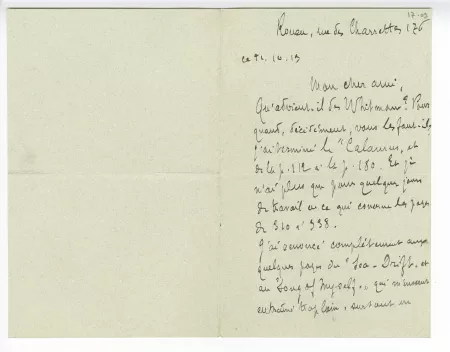 17-02
Rouen, rue des Charrettes 176
ce 14.13
Mon cher ami,
Qu'advient-il des Whitman? Pour
quand, décidément, vous les faut-il,
j'ai terminé le "Calamus, et
de la p. 112 à la p. 180. Et je
n'ai plus que pour quelques jours
de travail en ce qui concerne les pages
de 310 à 338.
J'ai renoncé complètement aux
quelques pages du "Sea-Drift, et
au "Song of Myself", qui m'eussent
entraîné trop loin, surtout en